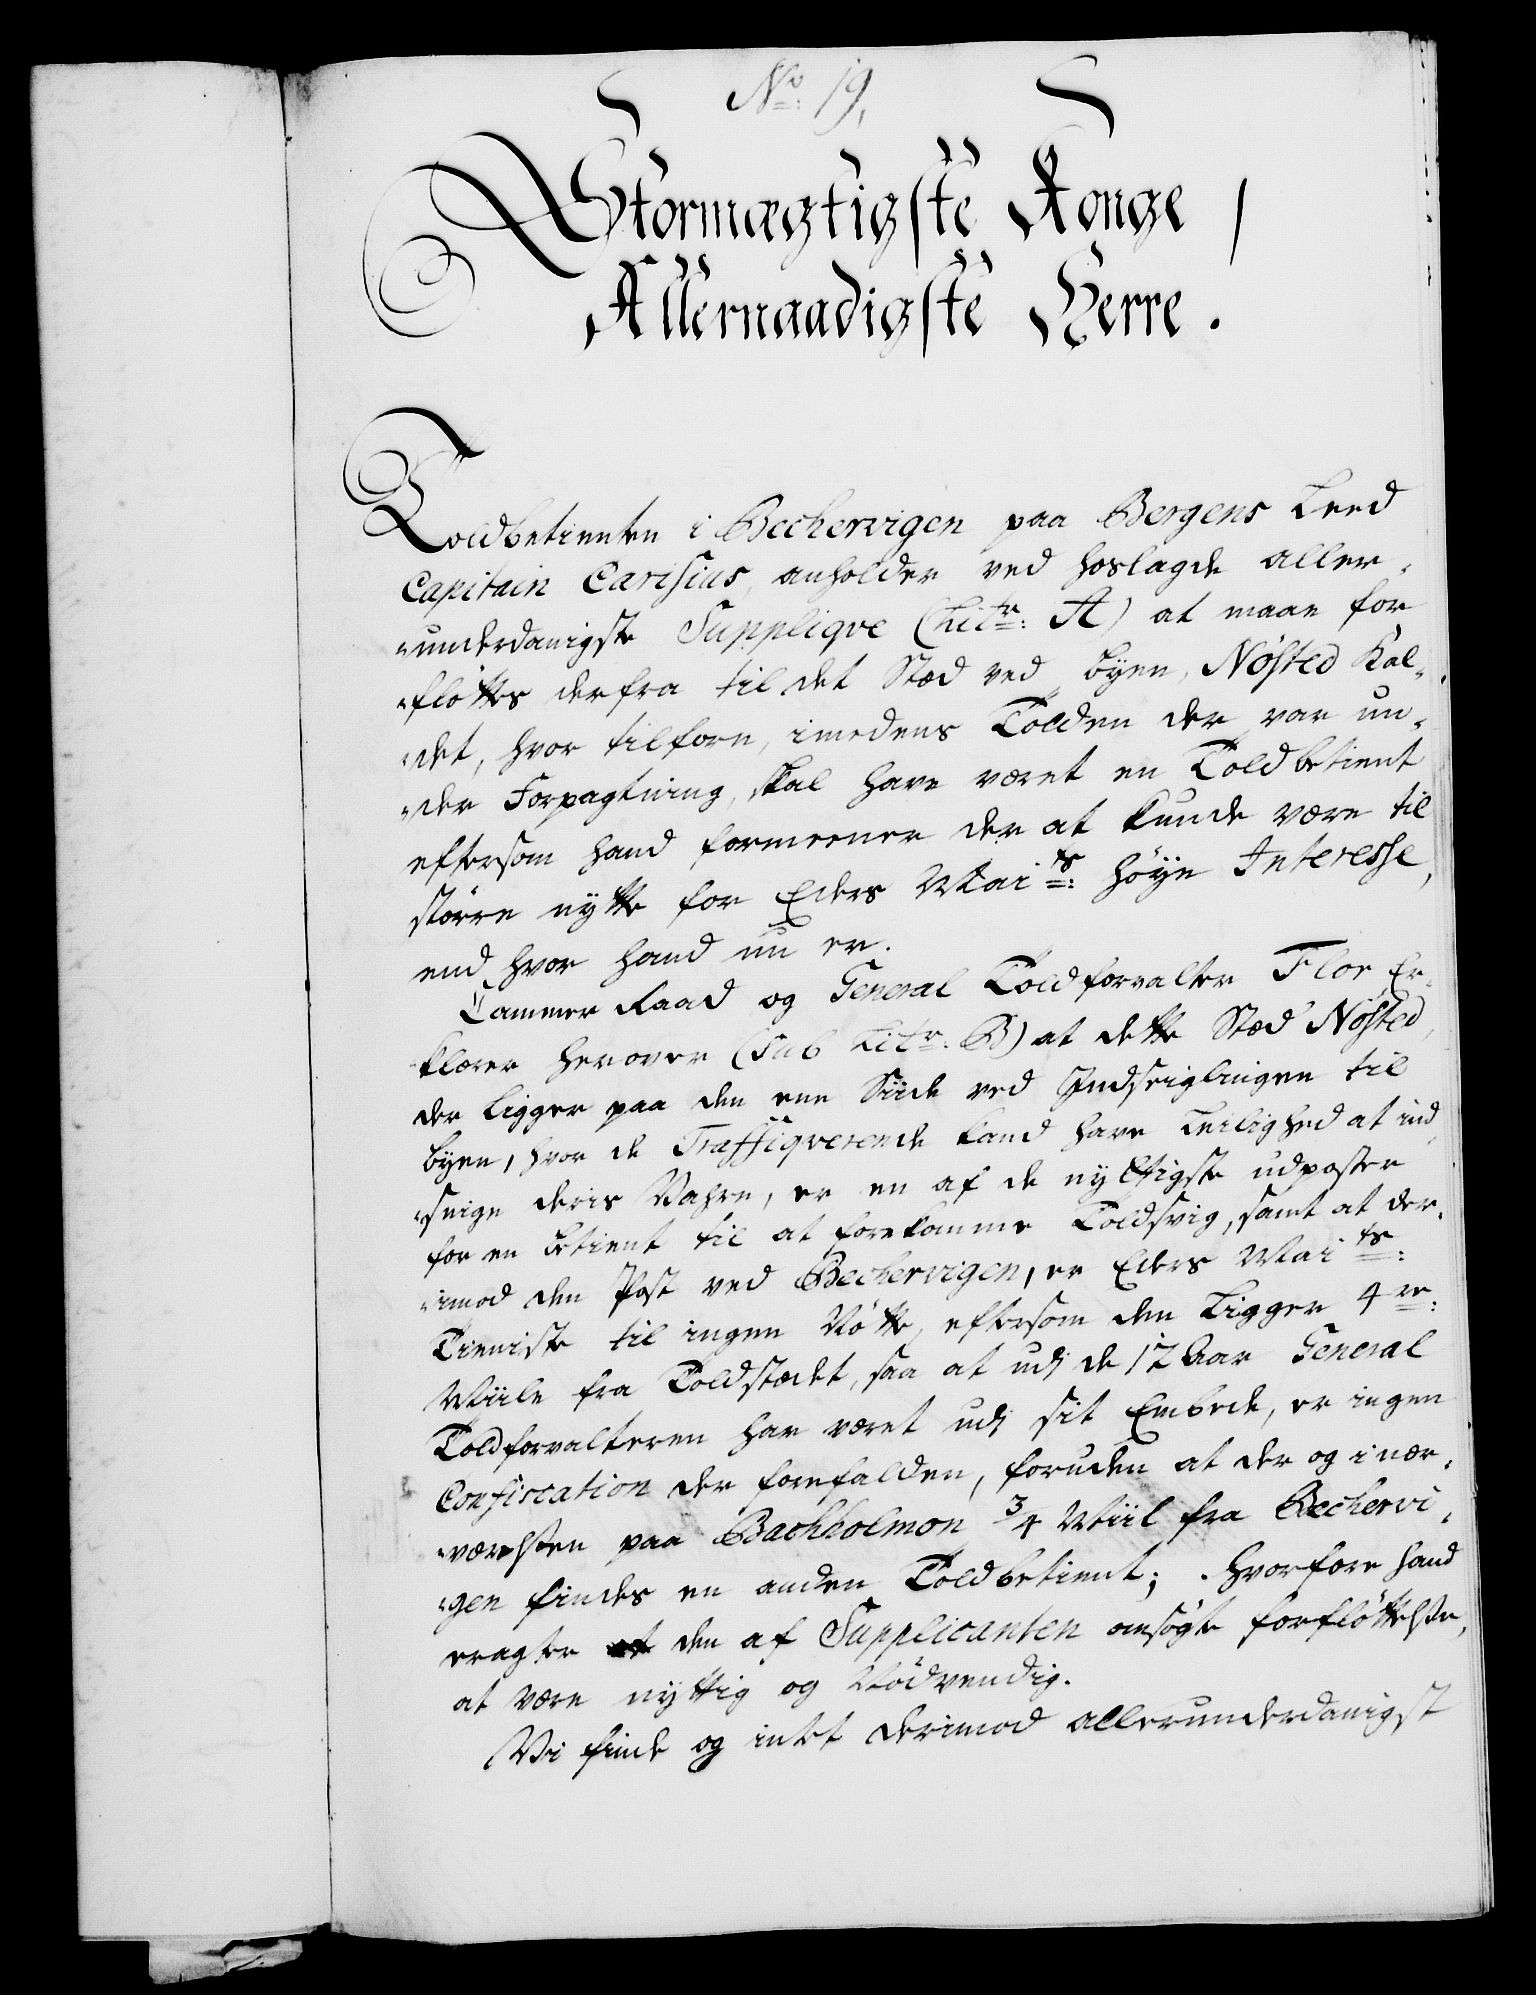 No: 19,
Stormægtigste Konge /
Allernaadigste Herre.
Toldbetienten i Bechervigen paa Bergens Leed
Capitain Carisius, anholder ved hoslagde aller-
-underdanigste Supplique (Litr: A) at maae for
-fløttes derfra til det Stæd ved byen, Nøsted Kal-
-det, hvor tilforn, imedens Tolden der var un-
-der Forpagtning, skal have været en Toldbetient
eftersom hand formeener der at kunde være til
større nytte for Eders Maits: høye Interesse,
end hvor hand nu er.
Cammer Raad og General Toldforvalter Flor, Er-
-klærer herover (sub Litr: B) at dette Stæd Nøsted,
der ligger paa den eene Siide ved Indseiglingen til
byen, hvor de Traffiqverende kand have Leilighed at ind
-snige deris Vahre, er en af de nyttigste udposter
for en betient til at forekomme Toldsvig, samt at der-
-imod den Post ved Bechervigen, er Eders Maits:
Tieniste til ingen Nøtte, eftersom den ligger 4re:
Miile fra Toldstædet, saa at udj de 17 Aar General
Toldforvalteren har været udj sit Embede, er ingen
Confiscation der forefalden, foruden at der og i nær-
-værelsen paa Bachholmen 3/4 Miil fra Bechervi-
-gen findes en anden Toldbetient; hvorfore hand
eragter den af Supplicanten ansøgte forfløttelse,
at være nyttig og Nødvendig.
Vi finde og intet derimod allerunderdanigst